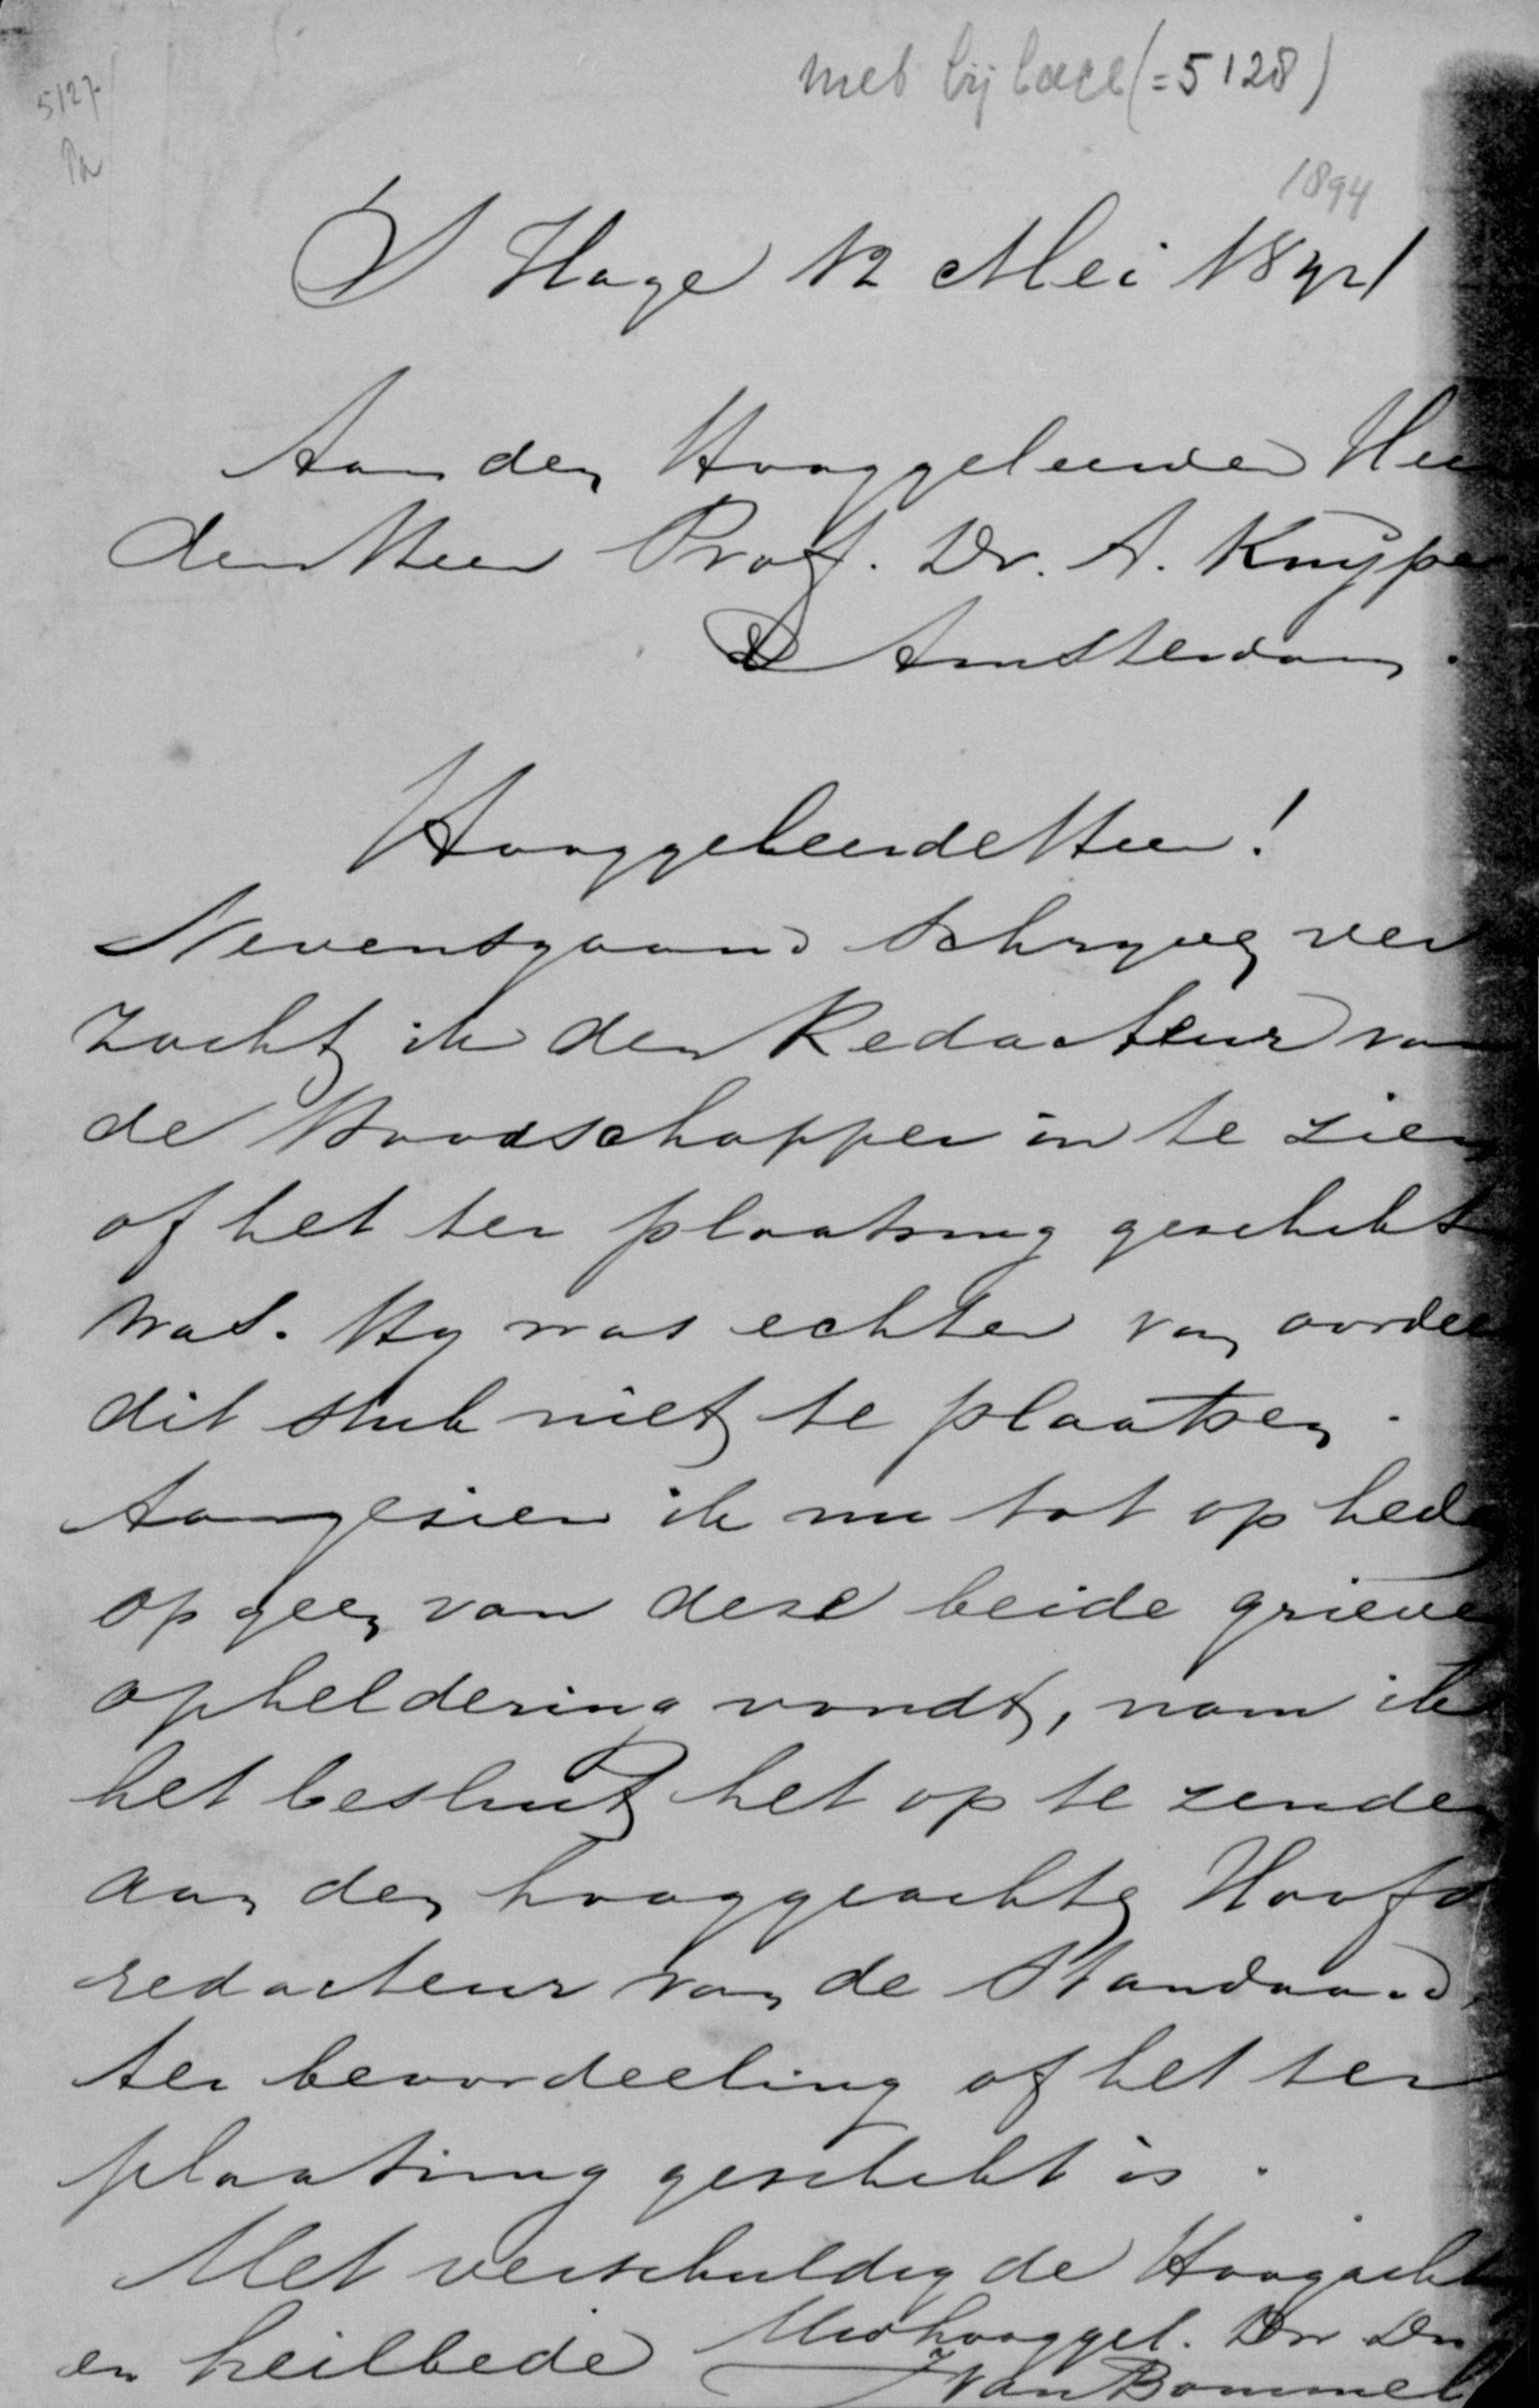 met bijlage (=5128)
5127
Pa
1894
S Hage 12 Mei 1894
Aan den Hooggeleerden Heer
den Heer Prof. Dr. A. Kuyper
Amsterdam.
Hooggeleerde Heer!
Nevensgaand schryven ver
zocht ik den Redacteur van
de Boodschapper in te zien
of het ter plaatsing geschikt
was. Hy was echter van oordeel
dit stuk niet te plaatsen.
Aangesien ik nu tot op heden
op geen van dese beide grieven
opheldering vondt, nam ik
het besluit het op te zenden
aan den hooggeachte Hoofd
redacteur van de Standaard,
ter beoordeeling of het ter
plaatsing geschikt is.
Met verschuldigde Hoogacht
en heilbede Uwhooggel. Dw Dr
J van Bommel